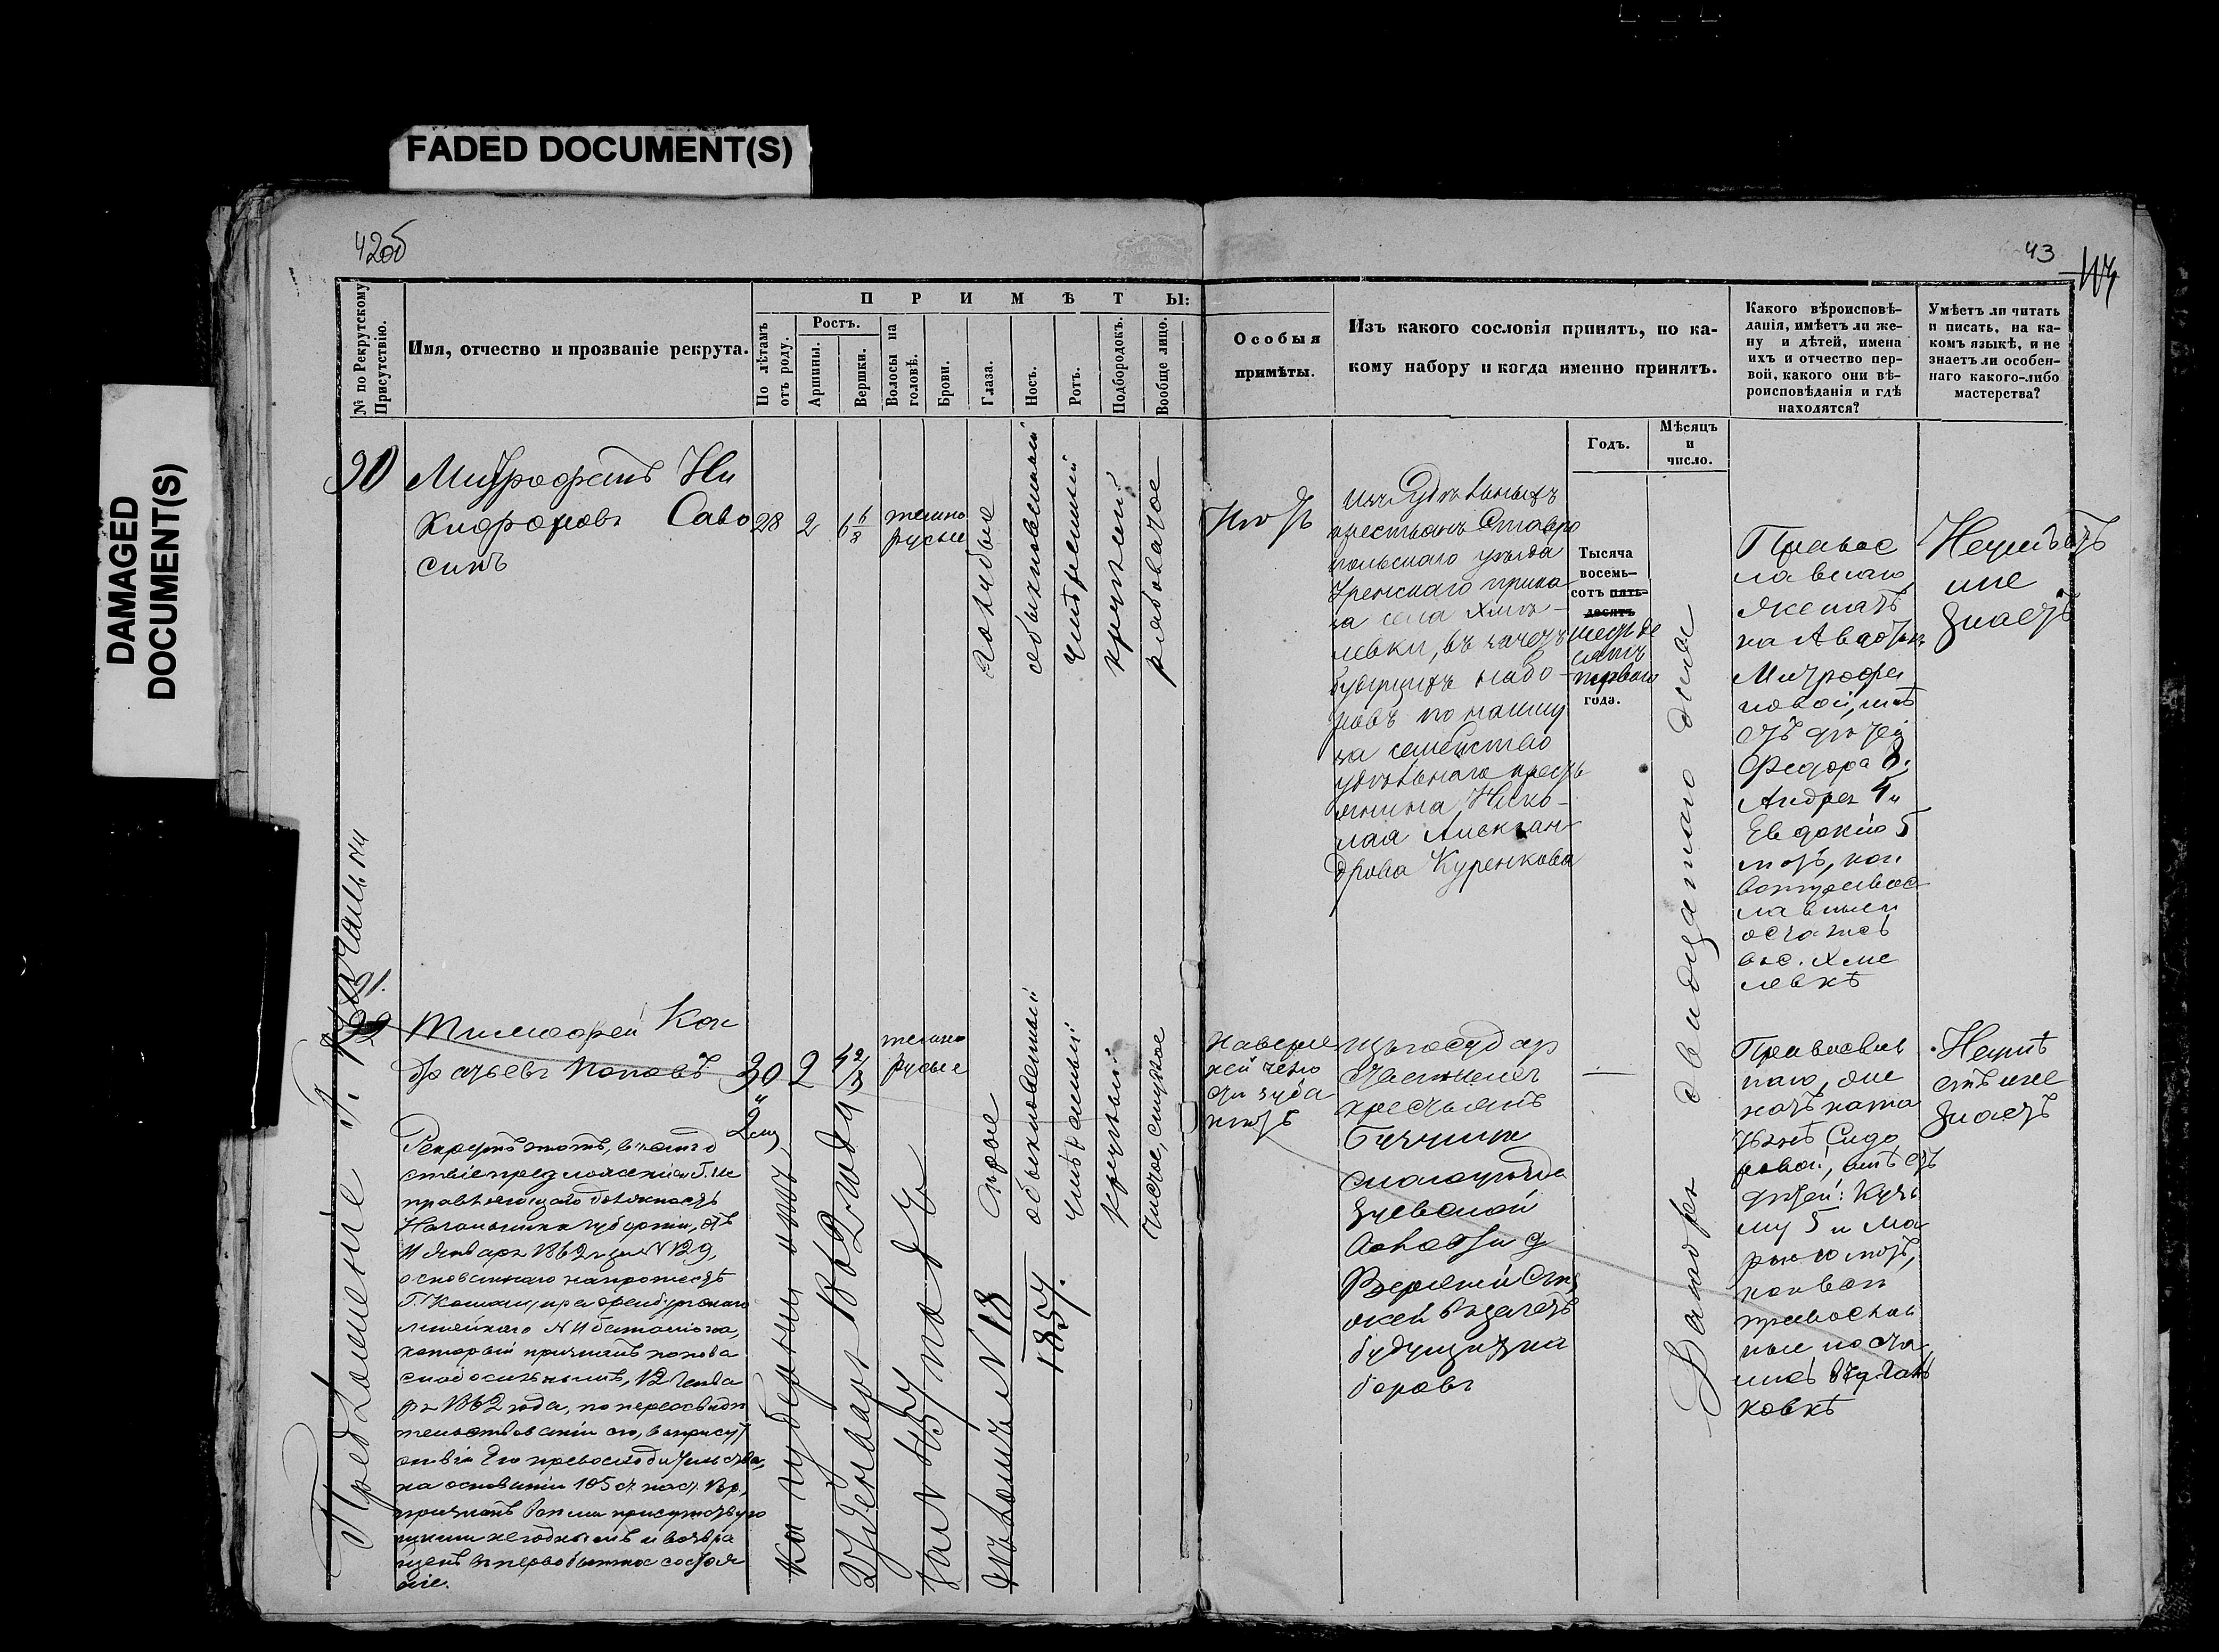 FADED DOCUMENT(S)
DAMAGED
DOCUMENT(S)
42об
43
П Р И М Ѣ Т Ы:
№ по Рекрутскому
Присутствію.
Имя, отчество и прозваніе рекрута.
По лѣтамъ
отъ роду.
Ростъ.
Аршины.
Вершки.
Волосы на
головѣ.
Брови.
Глаза.
Носъ.
Ротъ.
Подбородокъ.
Вообще лицо.
Особыя
примѣты.
Изъ какого сословія принятъ, по ка-
кому набору и когда именно принятъ.
Годъ.
Мѣсяцъ
и
число.
Какого вѣроисповѣ-
данія, имѣетъ ли же-
ну и дѣтей, имена
ихъ и отчество пер-
вой, какого они вѣ-
роисповѣданія и гдѣ
находятся?
Умѣетъ ли читать
и писать, на ка-
комъ языкѣ, и не
знаетъ ли особен-
наго какого-либо
мастерства?
90
Митрофанъ Ни
кифоровъ Саво
синъ
28
2
6 6/8
темно
русые
голубые
обыкновенный
умѣренный
круглый
рябоватое
нѣтъ
изъ Удѣльныхъ
крестьянъ Ставро
польскаго уѣзда
ка села Хмѣ-
левки, въ зачетъ
будущихъ набо-
ровъ по найму
за семейство
удѣльнаго кресть
янина Нико-
лая Алексан-
дрова Куренкова
Тысяча
восемь-
сотъ пять-
десятъ
шестьде
сятъ
перваго
года.
Декабря двадцатаго дня
Правос
лавнаго,
женатъ
на Авдотьѣ
Митрофа
новой, имѣ
етъ дѣтей
Федора 8,
Андрея 4 и
Евдокію 5
лѣтъ, кои
вси правос
лавные
остались
въ с. Хме
левкѣ
Неумѣетъ
и не
знаетъ
91.
Тимофей Кон
дратьевъ Поповъ
30
2
4 2/8
темно
русые
сѣрые
обыкновенный
умѣренный
круглый
чистое, смуглое
наверх
ней челю
сти зуба
нѣтъ
изъ государ
ственныхъ
крестьянъ
Бузулук
скаго уѣзда
Зуевской
волости д.
въ зачетъ
будущихъ на
боровъ
Православ
наго, же
натъ на Та
тьянѣ Сидо
ровой, имѣетъ
дѣтей: Кузь
му 5 и Ма
рью 10 лѣтъ,
кои вси
православ
ные и оста
лись въ д.
ковкѣ
Неумѣ
етъ и не
знаетъ
Рекрутъ этотъ, въ слѣд
ствіе предложенія Г. Ис
правляющаго должность
Начальника губерніи, отъ
11 Января 1862 г. за N 129,
основаннаго на протестѣ
Г. Командира Оренбургскаго
линейнаго N 11 баталіона,
который призналъ Попова
слабосильнымъ, 12 Янва
ря 1862 года, по переосвидѣ
тельствованіи его, въ присут
ствіи Его превосходительства,
на основаніи 105 ст. наст. вр.,
признанъ всѣми присутствую
щими негоднымъ и возвра
щенъ въ первобытное состоя
ніе.
Предложеніе Г. Начальни
ка губерніи отъ
12 Генваря 1862 года
за N 457 по дѣлу
N 18
1857.